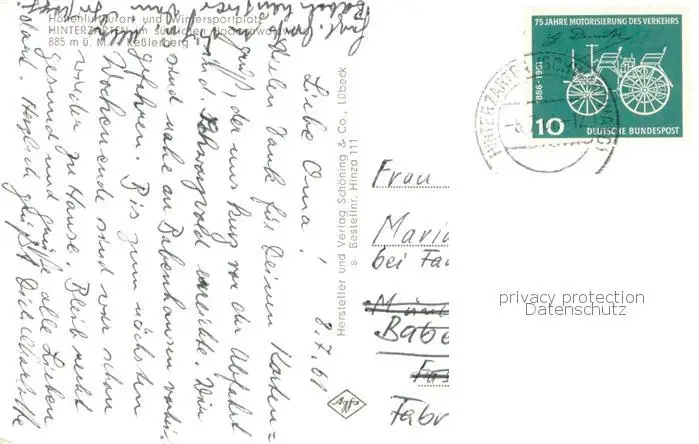 Höhenluftkurort und Wintersportplatz
HINTERZARTEN im südlichen Hochschwarzwald
885 m ü. M. Keßlerberg
8.7.61
Liebe Oma!
Vielen Dank für Deinen Karten=
gruß, der uns kurz vor der Abfahrt
Schwarzwald erreichte. Wir
sind nahe an Babenhausen vorbei
gefahren. Bis zum nächsten
Wochenende sind wir schon
wieder zu Hause. Bleib recht
gesund und grüße alle Lieben
Herzlich grüßt Dich
Hersteller und Verlag Schöning & Co., Lübeck
s Bestellnr. Hinza 111
Agfa
75 JAHRE MOTORISIERUNG DES VERKEHRS
G Daimler
1886-1961
10
DEUTSCHE BUNDESPOST
HINTERZARTEN
Frau
Maria
bei Fa
Babe
Fabr
privacy protection
Datenschutz